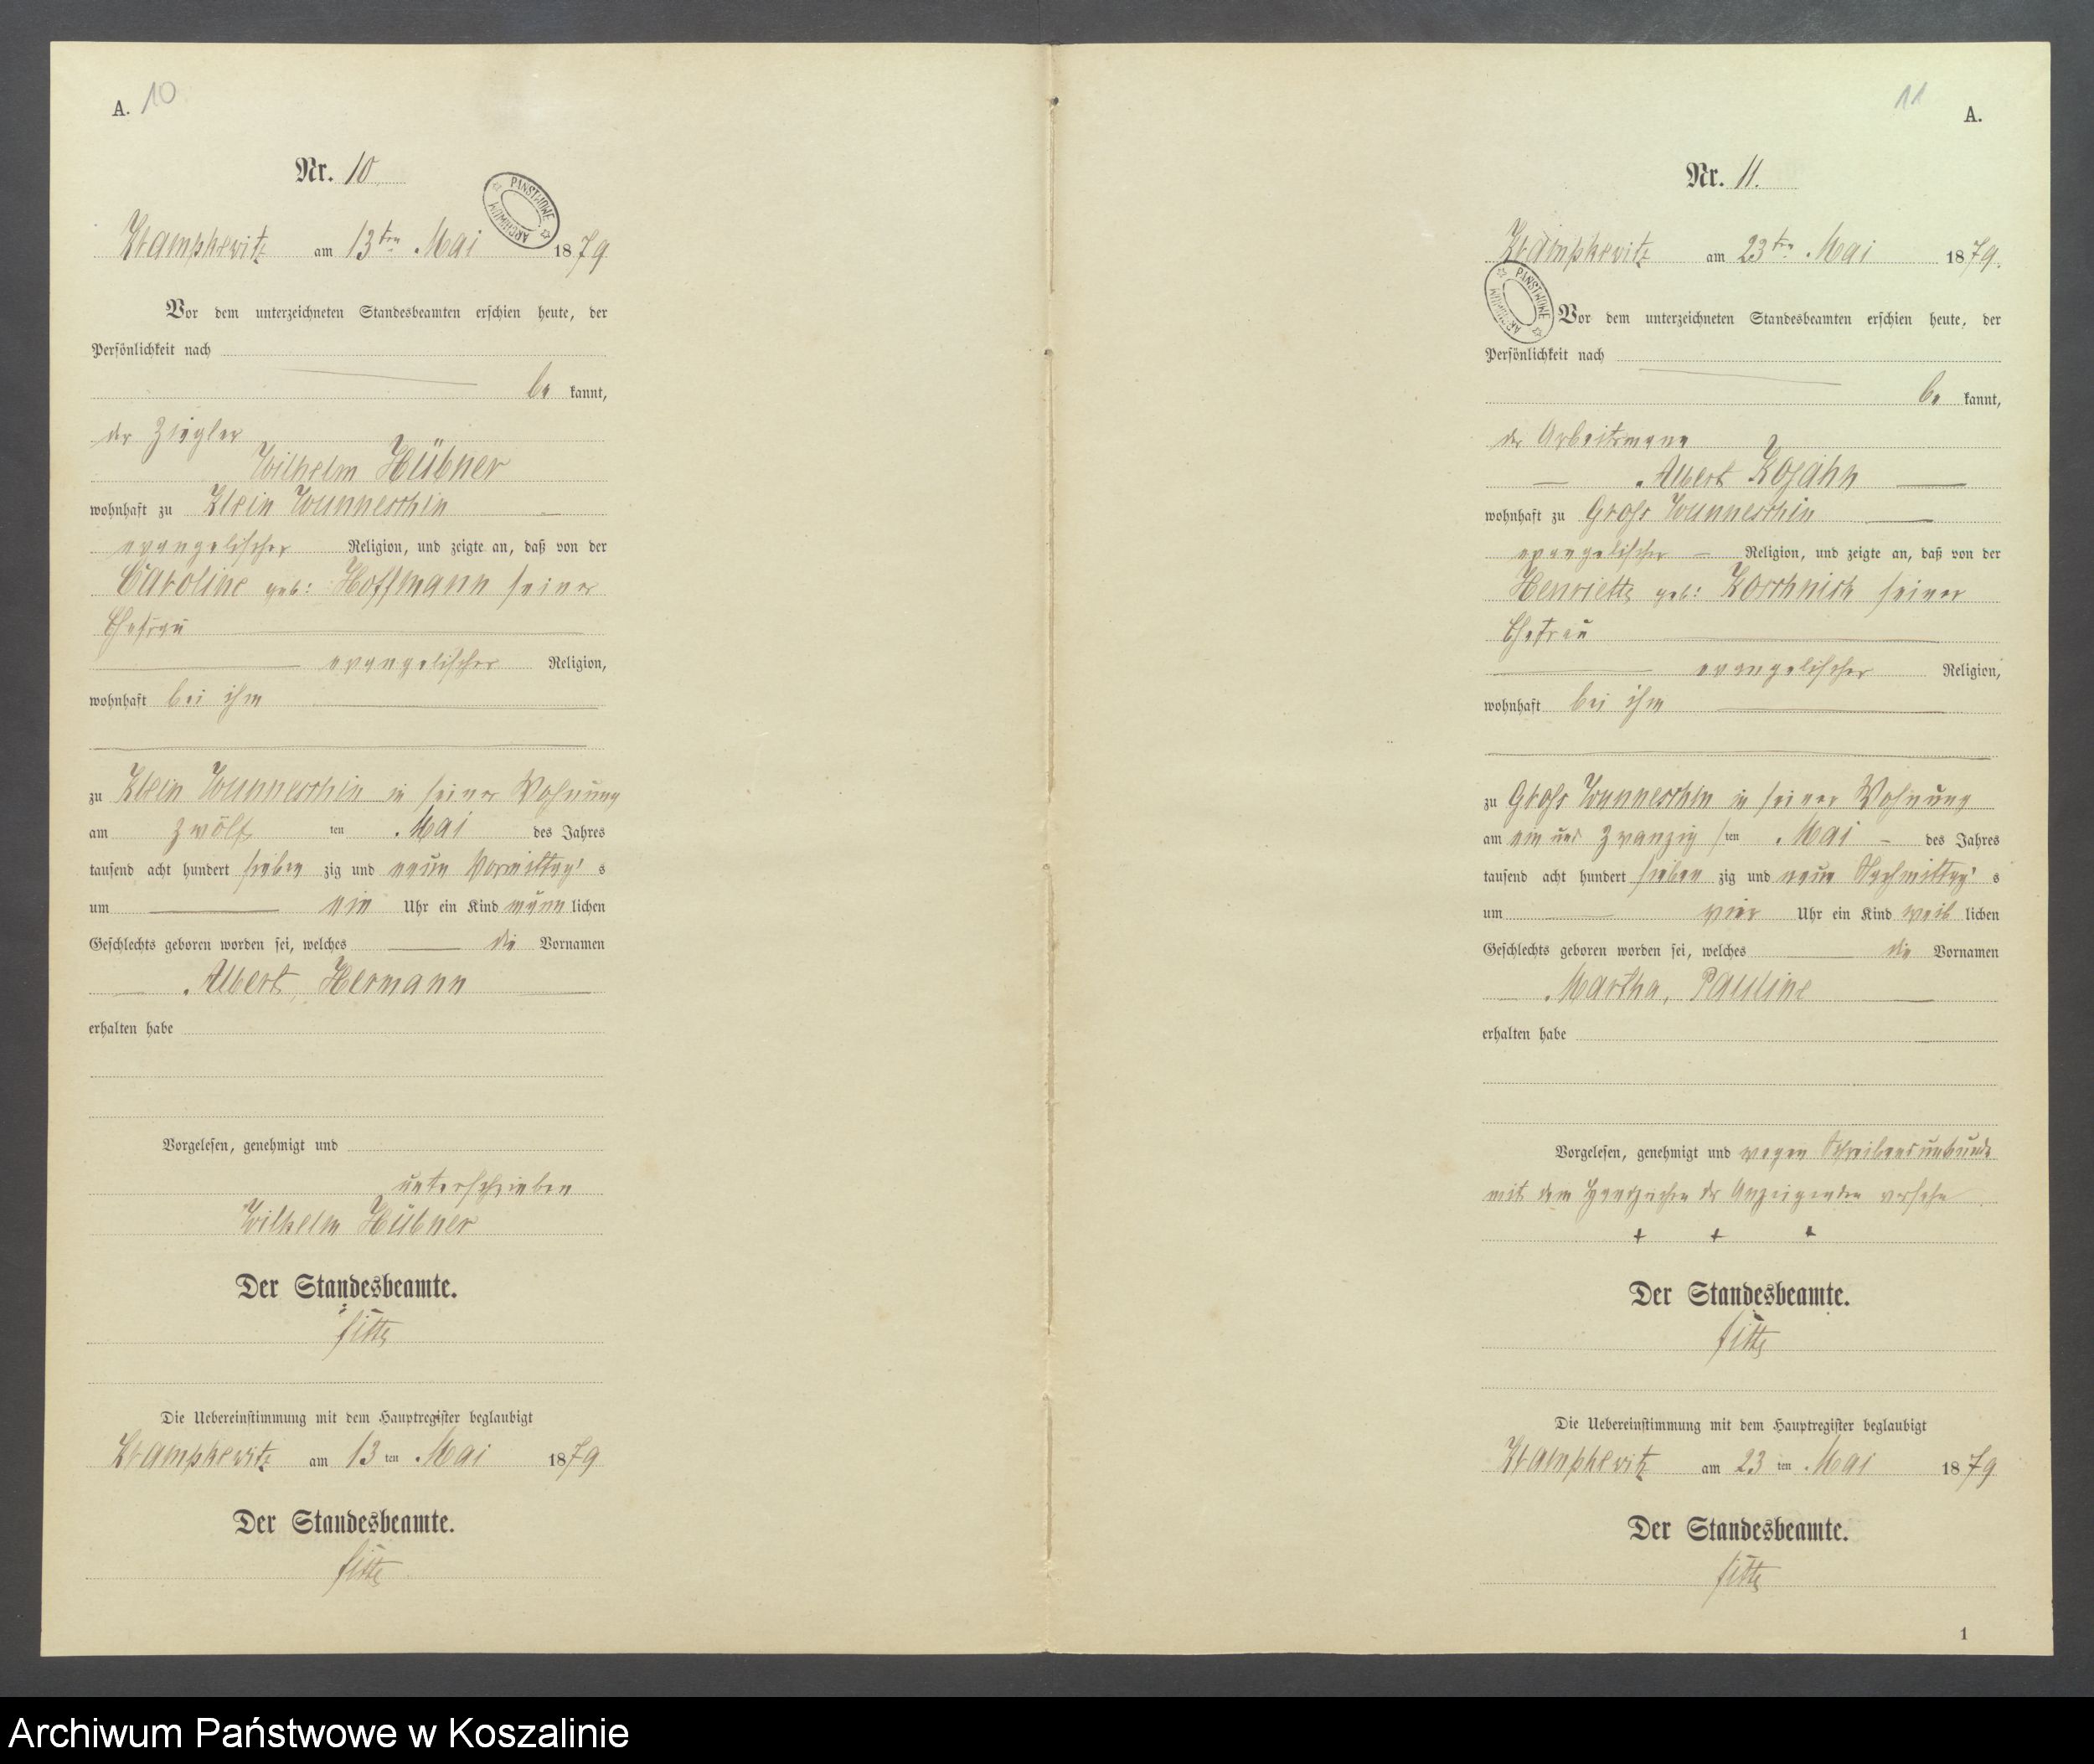 A. 10
Nr. 10
Krampkewitz am 13ten Mai 1879
PANSTWOWE ARCHIWUM
Vor dem unterzeichneten Standesbeamten erschien heute, der
Persönlichkeit nach
be kannt,
der Ziegler
Wilhelm Hübner
wohnhaft zu Klein Wunneschin
evangelischer Religion, und zeigte an, daß von der
Caroline geb: Hoffmann seiner
Ehefrau
evangelischer Religion,
wohnhaft bei ihm
zu Klein Wunneschin in seiner Wohnung
am zwölf ten Mai des Jahres
tausend acht hundert sieben zig und neun Vormittag's
um ein Uhr ein Kind männ lichen
Geschlechts geboren worden sei, welches die Vornamen
Albert, Hermann
erhalten habe
Vorgelesen, genehmigt und
unterschrieben
Wilhelm Hübner
Der Standesbeamte.
Die Uebereinstimmung mit dem Hauptregister beglaubigt
Krampkewitz am 13 ten Mai 1879
Der Standesbeamte.
11
A.
Nr. 11.
Krampkewitz am 23ten Mai 1879.
PANSTWOWE ARCHIWUM
Vor dem unterzeichneten Standesbeamten erschien heute, der
Persönlichkeit nach
be kannt,
der Arbeitsmann
Albert Kojahn
wohnhaft zu Groß Wunneschin
evangelischer Religion, und zeigte an, daß von der
Henriette geb: Koschnick seiner
Ehefrau
evangelischer Religion,
wohnhaft bei ihm
zu Groß Wunneschin in seiner Wohnung
am ein und zwanzigs ten Mai des Jahres
tausend acht hundert sieben zig und neun Nachmittag's
um vier Uhr ein Kind weib lichen
Geschlechts geboren worden sei, welches die Vornamen
Martha, Pauline
erhalten habe
Vorgelesen, genehmigt und wegen Schreibensunkunde
mit dem Handzeichen des Anzeigenden versehn
+ + +
Der Standesbeamte.
Die Uebereinstimmung mit dem Hauptregister beglaubigt
Krampkewitz am 23 ten Mai 1879
Der Standesbeamte.
1
Archiwum Państwowe w Koszalinie